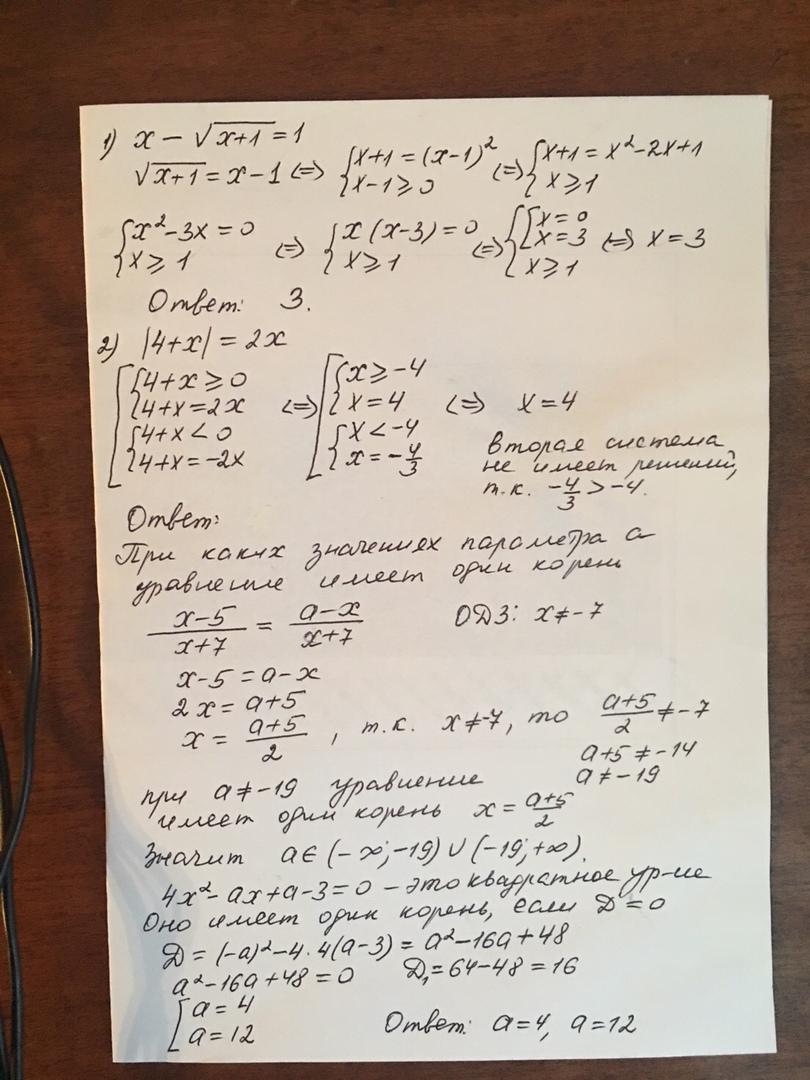 1) x − √(x+1) = 1
√(x+1) = x−1 ⇔ { x+1 = (x−1)² ; x−1 ⩾ 0 ⇔ { x+1 = x²−2x+1 ; x ⩾ 1
{ x²−3x = 0 ; x ⩾ 1 ⇔ { x(x−3) = 0 ; x ⩾ 1 ⇔ { [ x = 0 ; x = 3 ; x ⩾ 1 ⇔ x = 3
Ответ: 3.
2) |4+x| = 2x
[ { 4+x ⩾ 0 ; 4+x = 2x ; { 4+x < 0 ; 4+x = −2x ⇔ [ { x ⩾ −4 ; x = 4 ; { x < −4 ; x = −4/3 ⇔ x = 4
вторая система
не имеет решений,
т.к. −4/3 > −4.
Ответ:
При каких значениях параметра а
уравнение имеет один корень
(x−5)/(x+7) = (a−x)/(x+7) ОДЗ: x ≠ −7
x−5 = a−x
2x = a+5
x = (a+5)/2 , т.к. x ≠ −7, то (a+5)/2 ≠ −7
a+5 ≠ −14
a ≠ −19
при a ≠ −19 уравнение
имеет один корень x = (a+5)/2
Значит a ∈ (−∞; −19) ∪ (−19; +∞).
4x²−ax+a−3=0 – это квадратное ур-ие
Оно имеет один корень, если D = 0
D = (−a)²−4·4(a−3) = a²−16a+48
a²−16a+48 = 0 D₁ = 64−48 = 16
[ a = 4
a = 12 Ответ: a = 4, a = 12